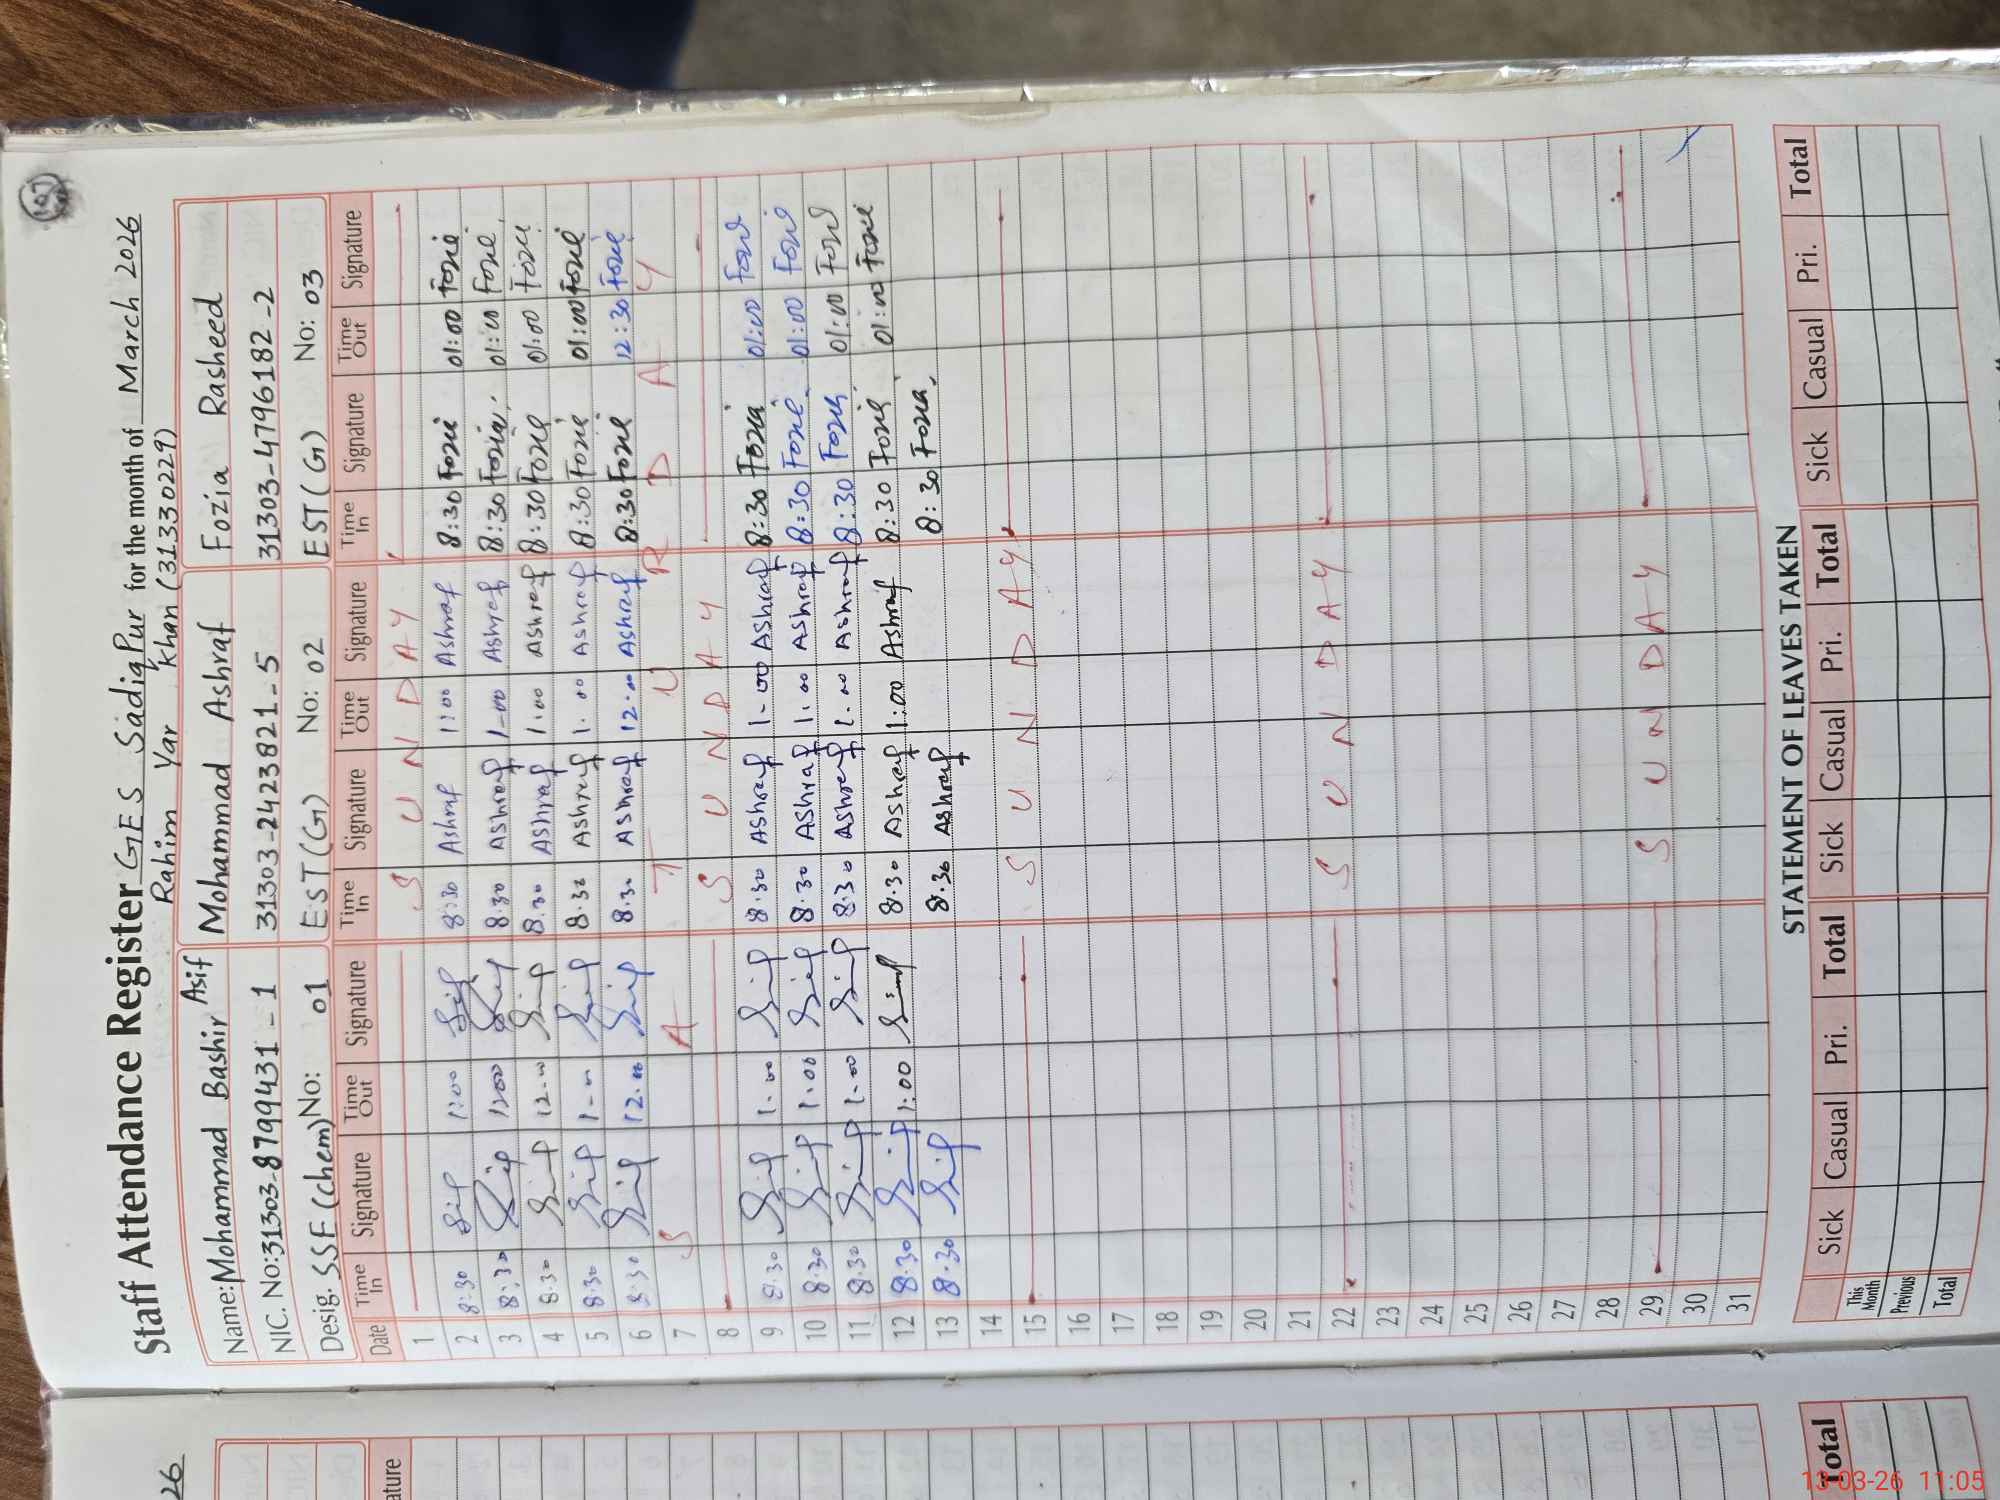 107
Staff Attendance Register GES Sadiq Pur for the month of March 2026
Rahim Yar Khan (31330229)
Name: Mohammad Bashir Asif Mohammad Ashraf Fozia Rasheed
NIC. No: 31303-8799431-1 31303-2423821-5 31303-4796182-2
Desig. SSE (Chem) No: 01 EST (G) No: 02 EST (G) No: 03
Date Time In Signature Time Out Signature Time In Signature Time Out Signature Time In Signature Time Out Signature
1 S U N D A Y
2 8:30 1:00 8:30 Ashraf 1:00 Ashraf 8:30 Fozia 01:00 Fozia
3 8:30 8:30 Ashraf 1-00 Ashraf 8:30 Fozia 01:00 Fozia
4 8.30 12-00 8.30 Ashraf 1:00 Ashraf 8:30 Fozia 01:00 Fozia
5 8.30 1-00 8.30 Ashraf 1.00 Ashraf 8:30 Fozia 01:00 Fozia
6 8:30 12.00 8.30 Ashraf 12.00 Ashraf 8:30 Fozia 12:30 Fozia
7 S A T U R D A Y
8 S U N D A Y
9 8.30 1.00 8.30 Ashraf 1-00 Ashraf 8:30 Fozia 01:00 Fozia
10 8.30 1.00 8.30 Ashraf 1.00 Ashraf 8:30 Fozia 01:00 Fozia
11 8.30 1.00 8.30 Ashraf 1.00 Ashraf 8:30 Fozia 01:00 Fozia
12 8.30 1:00 8.30 Ashraf 1:00 Ashraf 8:30 Fozia 01:00 Fozia
13 8.30 8.30 Ashraf 8:30 Fozia
14
15 S U N D A Y
16
17
18
19
20
21
22 S U N D A Y
23
24
25
26
27
28
29 S U N D A Y
30
31
STATEMENT OF LEAVES TAKEN
Sick Casual Pri. Total Sick Casual Pri. Total Sick Casual Pri. Total
This Month
Previous
Total
26
ature
Total
13-03-26 11:05